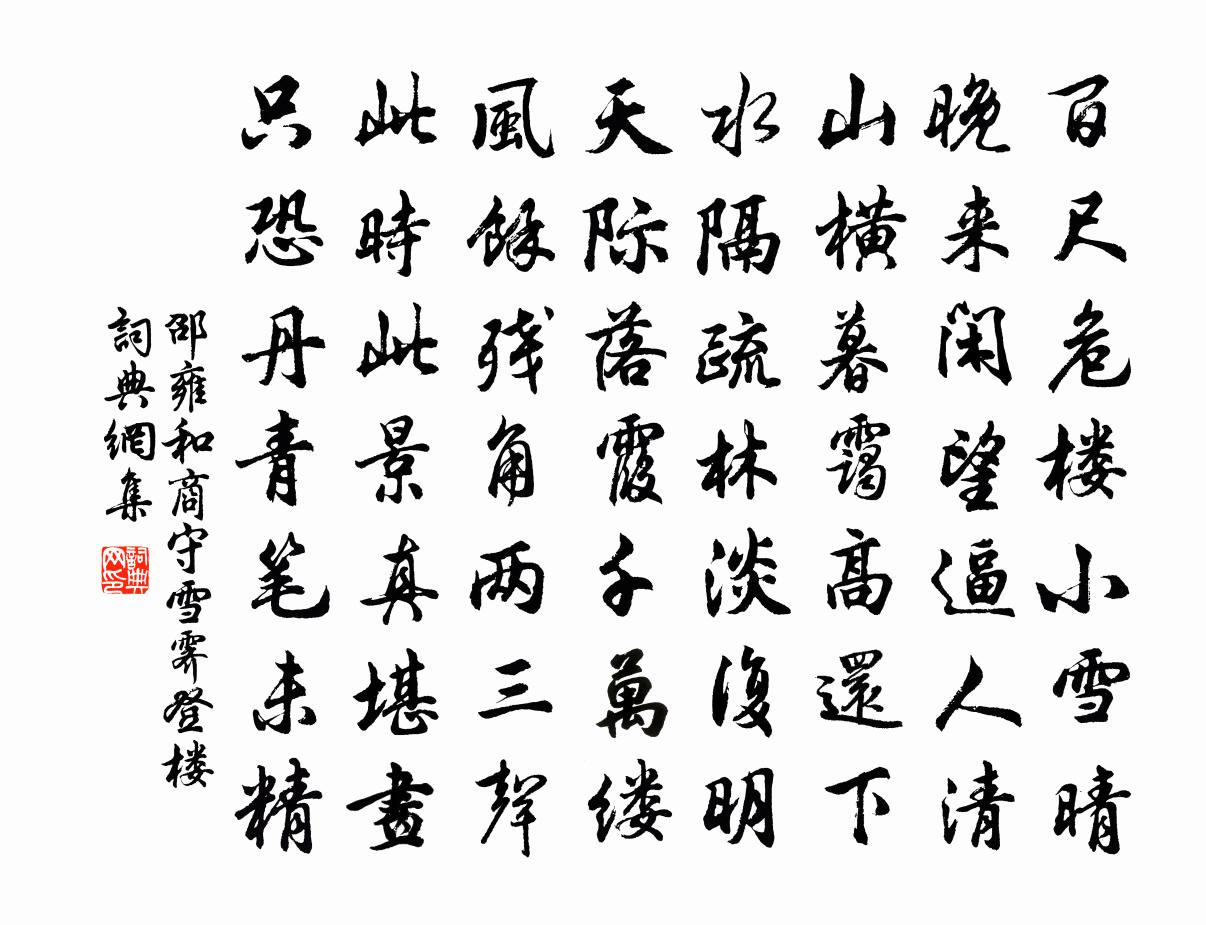 百尺危楼小雪晴
晚来闲望逼人清
山横暮霭高還下
水隔疏林淡復明
天际落霞千萬缕
風餘残角两三聲
此時此景真堪畫
只恐丹青笔未精
邵雍和商守雪霁登楼
詞典網集
詞典网印